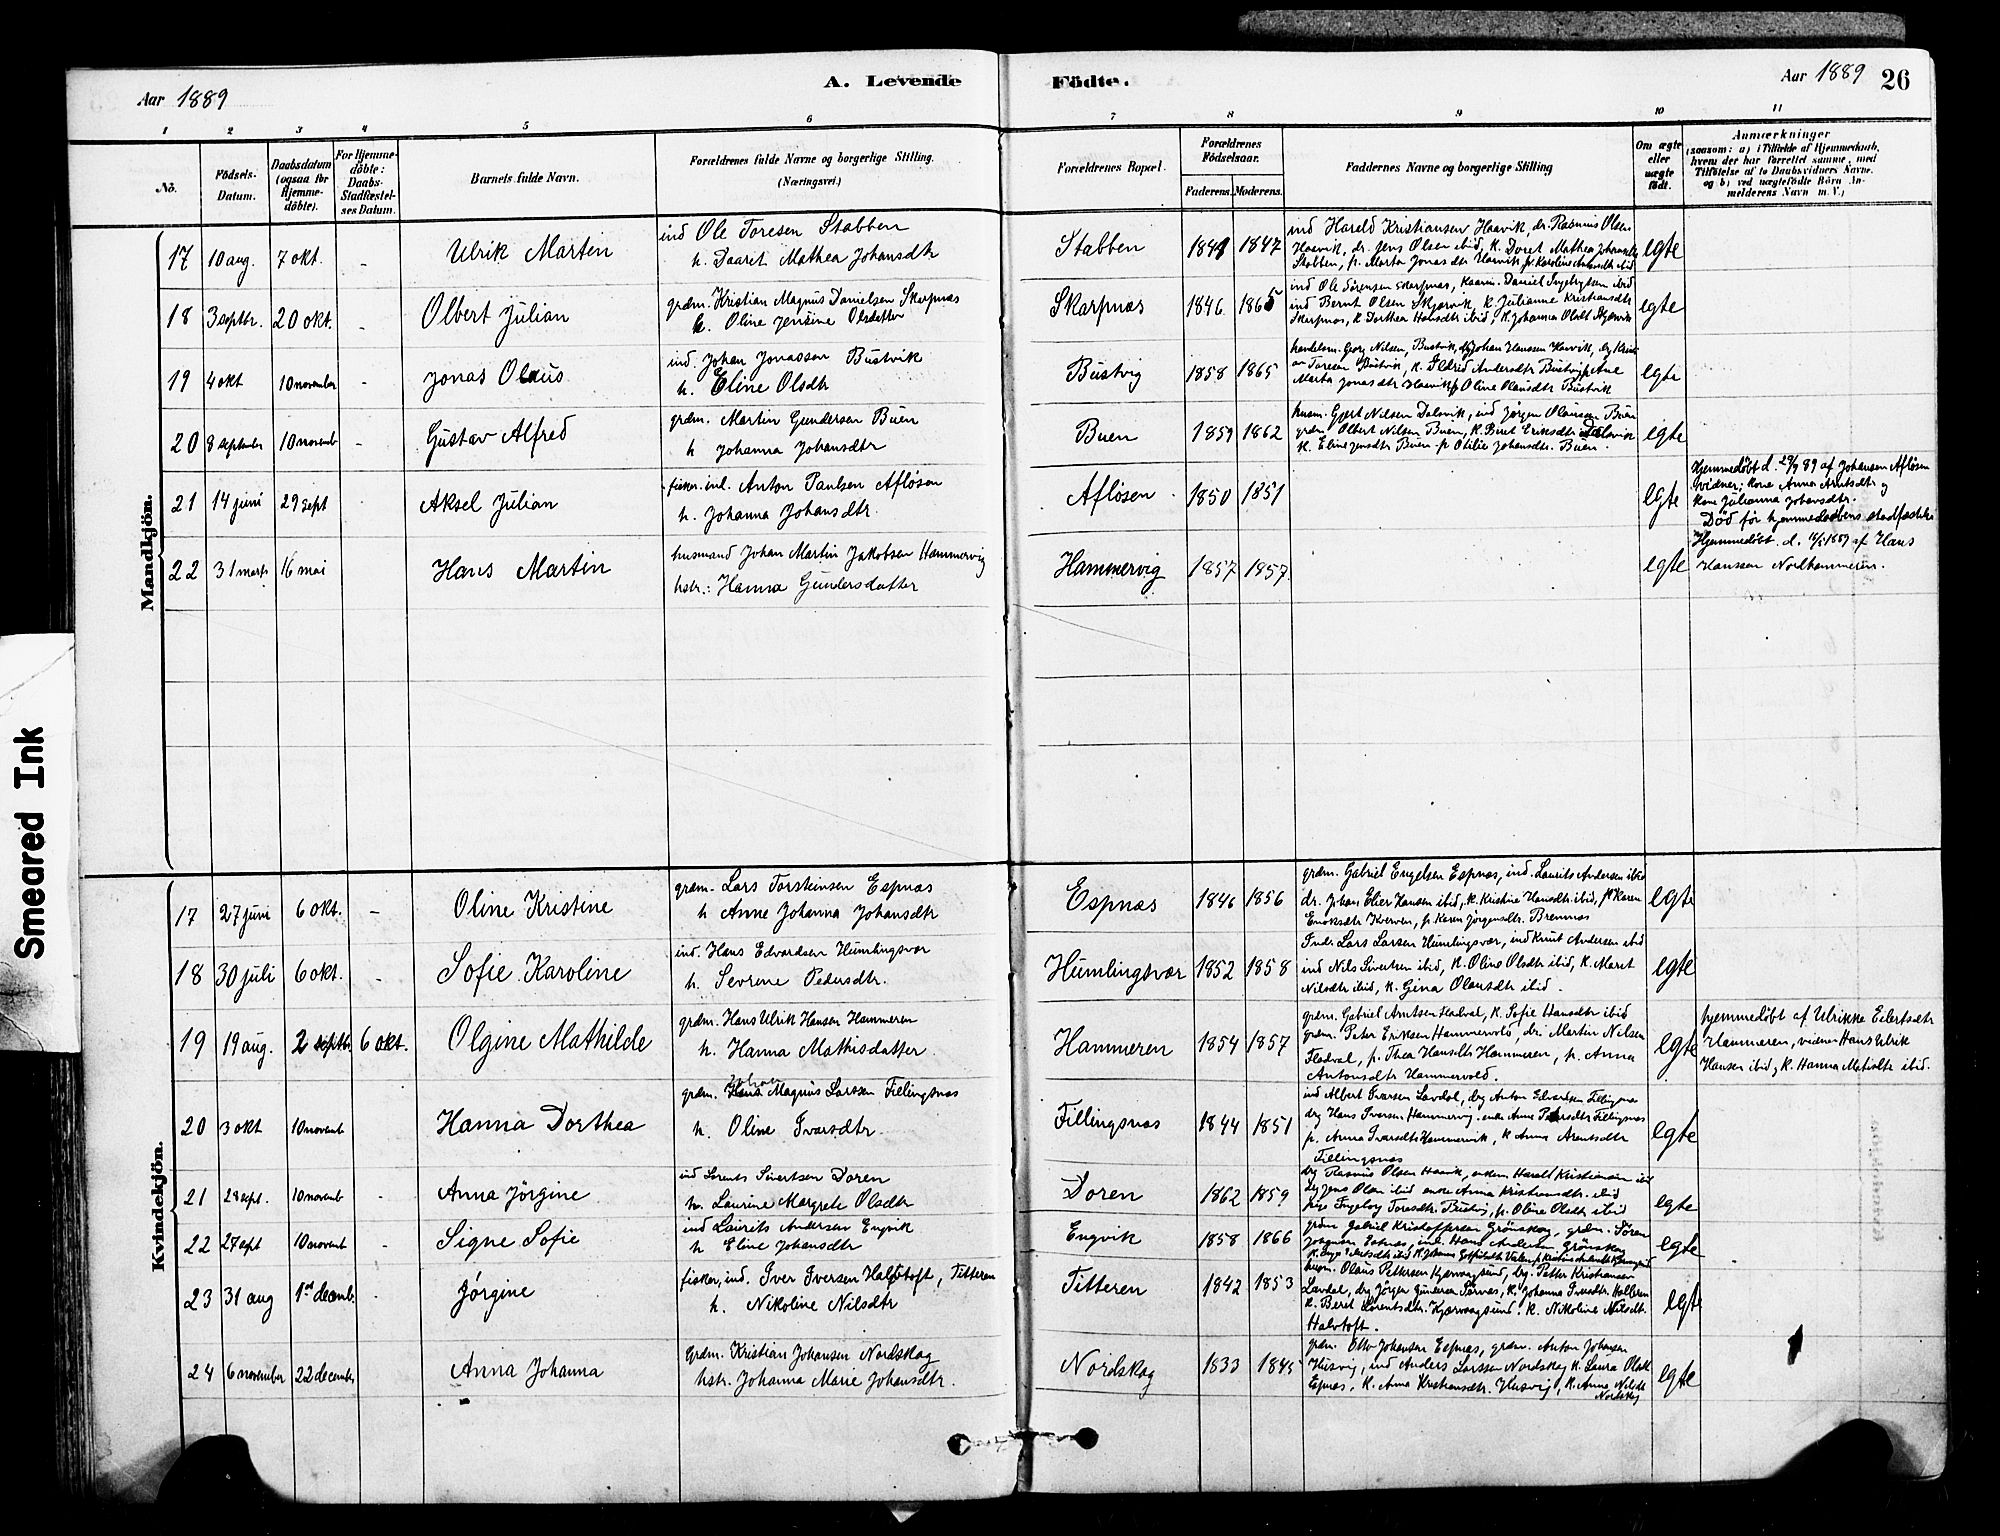 A. Levende Födte.
Aar 1889
Aar 1889 26
1 2 3 4 5 6 7 8 9 10 11
No.
Födsels-Datum.
Daabsdatum (ogsaa for Hjemme-döbte).
For Hjemme-döbte: Daabs-Stadfæstel-ses Datum.
Barnets fulde Navn.
Forældrenes fulde Navne og borgerlige Stilling.
(Næringsvei.)
Forældrenes Bopæl.
Forældrenes Födselsaar.
Faderens. Moderens.
Faddernes Navne og borgerlige Stilling
Om ægte eller uægte födt.
Anmærkninger
(saasom: a) i Tilfælde af Hjemmedaab, hvem der har forrettet samme, med Tilföielse af to Daabsvidners Navne, og b) ved uægtefödte Börn Anmelderens Navn m. V.)
Mandkjön.
17 10 aug. 7 okt. - Ulrik Martin
ind Ole Toresen Stabben
h. Daaret Mathea Johansdtr
Stabben 1841 1847
ind Harald Kristiansen Haavik, dr. Rasmus Olsen
Haavik, dr. Jens Olsen ibid, k. Doret Mathea Johansdtr
Stabben, p. Marta Jonasdtr Haavik
egte
18 3 septbr. 20 okt. - Olbert Julian
grdm. Kristian Magnus Danielsen Skarpnæs
k. Oline Jensine Olsdatter
Skarpnæs 1846 1865
ind Ole Sörensen Skarpnæs, Daniel Ingebrigtsen ibid
ind Bernt Olsen Skjærvik, k. Julianne Kristiansdtr
Skarpnæs, k. Dorthea Hansdtr ibid, k. Johanna Olsdt
egte
19 4 okt 10 november - Jonas Olaus
ind. Johan Jonassen Bustvik
h. Eline Olsdtr
Bustvig 1858 1865
Nilsen, Bustvik, Johan Hanssen Haavik,
Toresen Bustvik, k. Ildrid Andersdtr Bustvig, Ane
Marta Jonasdtr Haavik, Oline Olausdtr Bustvik
egte
20 8 september 10 novemb - Gustav Alfred
grdm. Martin Gundersen Buen
h Johanna Johansdtr
Buen 1859 1862
husm. Gjert Nilsen Dalavik, ind Jörgen Olaussen Buen
grdm Olbert Nilsen Buen, k. Beret Eriksdtr Dalavik
k. Eline Jensdtr Buen p. Otilie Johansdtr. Buen.
egte
21 14 juni 29 sept Aksel Julian
fisker. ind. Anton Paulsen Aflösen
h. Johanna Johansdtr.
Aflösen 1850 1851
egte
Hjemmedöbt d. 29/7 89 af Johansen Aflösen
vidner; kone Anna Arntsdtr og
kone Julianna Johansdtr.
Död för hjemmedaabens stadfæstelse
22 31 marts 16 mai Hans Martin
husmand Johan Martin Jakobsen Hammervig
hstr.: Hanna Gundersdatter
Hammervig 1857 1857.
egte
Hjemmedöbt d. 1889 af Hans
Hanssen Nordhammeren.
Kvindekjön.
17 27 juni 6 okt. - Oline Kristine
grdm. Lars Torsteinsen Espnæs
h Anne Johanna Johansdtr
Espnæs 1846 1856
grdm. Gabriel Engelsen Espnæs, ind. Laurits Andersen ibid
dr. Johan Elier Hansen ibid, k. Kristine Hansdtr ibid, p. Karen
Enoksdtr Kverven, p. Karen Jörgensdtr. Bremnæs
egte
18 30 juli 6 okt. - Sofie Karoline
ind. Hans Edvardsen Humlingsvær
h. Sevrene Pedersdtr.
Humlingsvær 1852 1858
Lars Larsen Humlingsvær, ind Knut Andersen ibid
ind Nils Sivertsen ibid, k. Oline Olsdtr ibid, k. Maret
Nilsdtr ibid, k. Gina Olausdtr ibid.
egte
19 19 aug. 2 septbr 6 okt. Olgine Mathilde
grdm. Hans Ulrik Hansen Hammeren
h. Hanna Mathisdatter
Hammeren 1854 1857
grdm. Gabriel Arntsen Fladval, k. Sofie Hansdtr ibid
grdm. Peter Eriksen Hammervold, dr. Martin Nilsen
Fladval, p. Thea Hansdtr Hammeren, p. Anna
Antonsdtr Hammervold.
egte
hjemmedöbt af Ulrikke Eilertsdtr
Hammeren, vidner Hans Ulrik
Hansen ibid, k. Hanna Mathisdtr ibid.
20 3 okt 10 novemb Hanna Dorthea
grdm. Johan Magnus Larssen Fillingsnæs
h. Oline Ivarsdtr.
Fillingsnæs 1844 1851
ind Albert Ivarsen Lavdal, drg Anton Edvardsen Fillingsnæs
drg Hans Iversen Hammervig. enke Anne Fillingsnæs
p. Anna Ivarsdtr Hammervik, k Anna Arentsdtr
Fillingsnæs
egte
21 28 sept. 10 novemb - Anna Jörgine
ind Lorents Sivertsen Doren
h. Laurine Margrete Olsdtr
Doren 1862 1859
drg Rasmus Olsen Haavik, Harald Kristiansen ibid
drg Jens Olsen ibid enke Anna Kristiansdtr. ibid
pige Ingeborg Toresdtr. Bustvig, p. Oline Olsdtr ibid
egte
22 27 sept 10 novemb - Signe Sofie
ind Laurits Andersen Engvik
h Eline Johansdtr
Engvik 1858 1866
grdm Gabriel Kristoffersen Grönskag, grdm. Sören
Johansen Espnæs, ind. Hans Andersen Grönskag
egte
23 31 aug 1st decemb. - Jörgine
fisker, ind. Iver Iversen Halvtoft, Titteren
h. Nikoline Nilsdtr
Titteren 1842 1853
husm. Olaus Pettersen Kjærvaagsund, drg. Petter Kristiansen
Lavdal, drg Jörgen Gundersen, k. Johanna Ivarsdtr
k. Beret Lorentsdtr. Kjærvaagsund. k. Nikoline Nilsdtr
Halvtoft.
egte
24 6 november 22 december Anna Johanna
Grdm. Kristian Johansen Nordskag
hstr. Johanna Marie Johansdtr.
Nordskag 1833 1845
grdm. Otto Johansen Espnæs, grdm. Anton Johansen
Husvig, ind Anders Larssen Nordskag k. Laura Olsdtr
Espnæs, k. Anna Kristiansdtr. Husvig, k. Anne Nilsdtr
Nordskag
egte
Smeared Ink